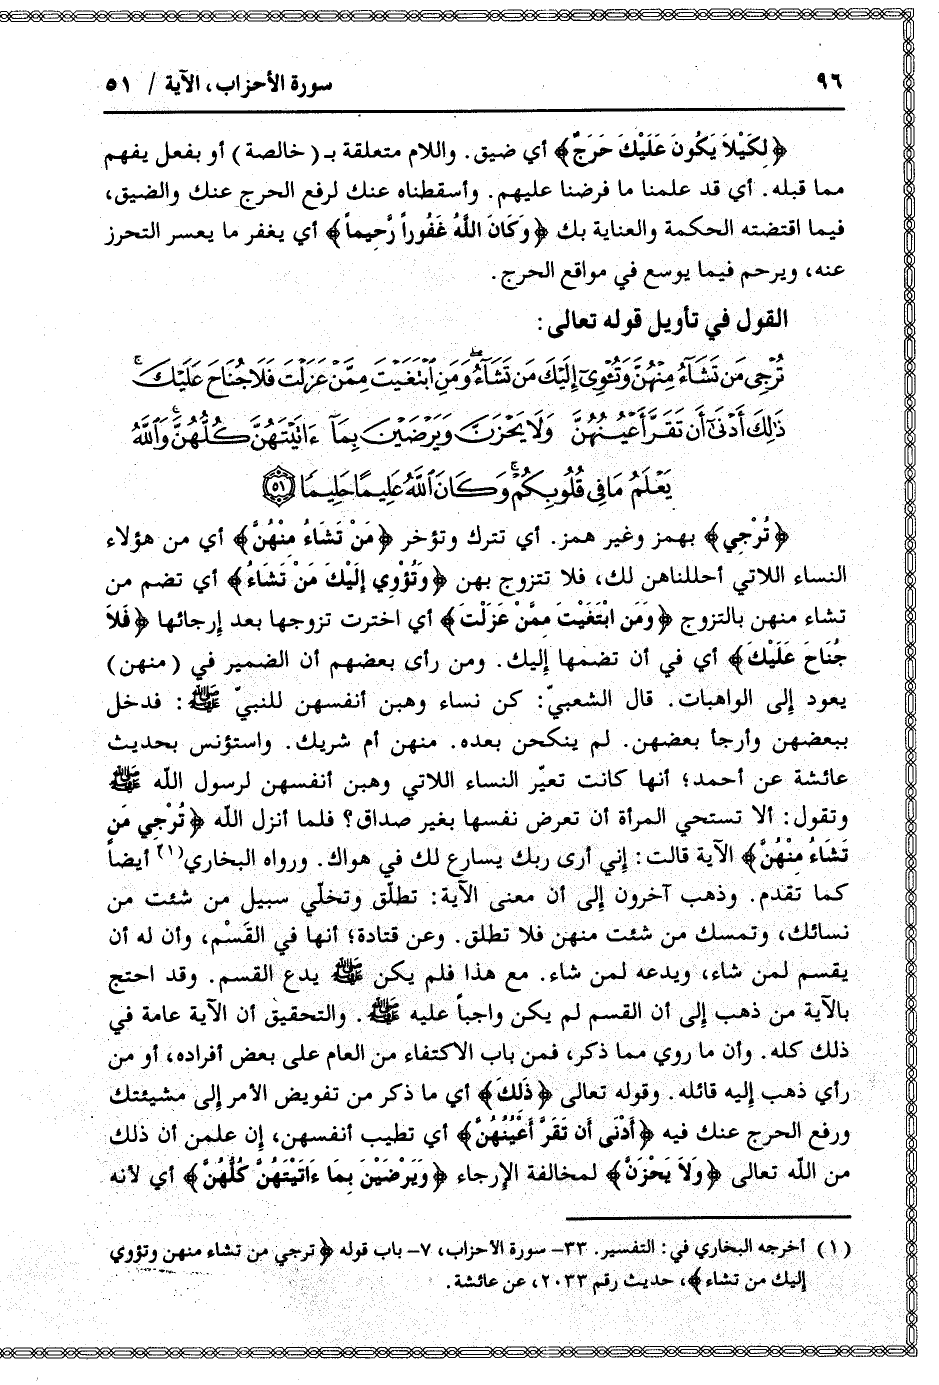 ٩٦
سورة الأحزاب، الآية / ٥١
﴿لِكَيْلاَ يَكُونَ عَلَيْكَ حَرَجٌ﴾ أي ضيق. واللام متعلقة بـ (خالصة) أو بفعل يفهم
مما قبله. أي قد علمنا ما فرضنا عليهم. وأسقطناه عنك لرفع الحرج عنك والضيق،
فيما اقتضته الحكمة والعناية بك ﴿وَكَانَ اللَّهُ غَفُوراً رَّحِيماً﴾ أي يغفر ما يعسر التحرز
عنه، ويرحم فيما يوسع في مواقع الحرج.
القول في تأويل قوله تعالى:
تُرْجِى مَن تَشَآءُ مِنْهُنَّ وَتُـْٔوِىٓ إِلَيْكَ مَن تَشَآءُ ۖ وَمَنِ ٱبْتَغَيْتَ مِمَّنْ عَزَلْتَ فَلَا جُنَاحَ عَلَيْكَ ۚ
ذَٰلِكَ أَدْنَىٰٓ أَن تَقَرَّ أَعْيُنُهُنَّ وَلَا يَحْزَنَّ وَيَرْضَيْنَ بِمَآ ءَاتَيْتَهُنَّ كُلُّهُنَّ ۚ وَٱللَّهُ
يَعْلَمُ مَا فِى قُلُوبِكُمْ ۚ وَكَانَ ٱللَّهُ عَلِيمًا حَلِيمًا ۝٥١
﴿تُرْجِي﴾ بهمز وغير همز. أي تترك وتؤخر ﴿مَنْ تَشَاءُ مِنْهُنَّ﴾ أي من هؤلاء
النساء اللاتي أحللناهن لك، فلا تتزوج بهن ﴿وَتُؤْوِي إِلَيْكَ مَنْ تَشَاءُ﴾ أي تضم من
تشاء منهن بالتزوج ﴿وَمَن ابْتَغَيْتَ مِمَّنْ عَزَلْتَ﴾ أي اخترت تزوجها بعد إرجائها ﴿فَلاَ
جُنَاحَ عَلَيْكَ﴾ أي في أن تضمها إليك. ومن رأى بعضهم أن الضمير في (منهن)
يعود إلى الواهبات. قال الشعبيّ: كن نساء وهبن أنفسهن للنبيّ ﷺ: فدخل
ببعضهن وأرجأ بعضهن. لم ينكحن بعده. منهن أم شريك. واستؤنس بحديث
عائشة عن أحمد؛ أنها كانت تعيّر النساء اللاتي وهبن أنفسهن لرسول اللّه ﷺ
وتقول: ألا تستحي المرأة أن تعرض نفسها بغير صداق؟ فلما أنزل اللّه ﴿تُرْجِي مَن
تَشَاءُ مِنْهُنَّ﴾ الآية قالت: إني أرى ربك يسارع لك في هواك. ورواه البخاري(١) أيضاً
كما تقدم. وذهب آخرون إلى أن معنى الآية: تطلّق وتخلّي سبيل من شئت من
نسائك، وتمسك من شئت منهن فلا تطلق. وعن قتادة؛ أنها في القَسْم، وأن له أن
يقسم لمن شاء، ويدعه لمن شاء. مع هذا فلم يكن ﷺ يدع القسم. وقد احتج
بالآية من ذهب إلى أن القسم لم يكن واجباً عليه ﷺ. والتحقيق أن الآية عامة في
ذلك كله. وأن ما روي مما ذكر، فمن باب الاكتفاء من العام على بعض أفراده، أو من
رأي ذهب إليه قائله. وقوله تعالى ﴿ذَلكَ﴾ أي ما ذكر من تفويض الأمر إلى مشيئتك
ورفع الحرج عنك فيه ﴿أَدْنَى أَن تَقَرَّ أَعْيُنُهُنَّ﴾ أي تطيب أنفسهن، إن علمن أن ذلك
من اللّه تعالى ﴿وَلاَ يَحْزَنَّ﴾ لمخالفة الإرجاء ﴿وَيَرْضَيْنَ بِمَا ءَاتَيْتَهُنَّ كُلُّهُنَّ﴾ أي لأنه
(١) أخرجه البخاري في: التفسير. ٣٣- سورة الأحزاب، ٧- باب قوله ﴿ترجي من تشاء منهن وتؤوي
إليك من تشاء﴾، حديث رقم ٢٠٣٣، عن عائشة.